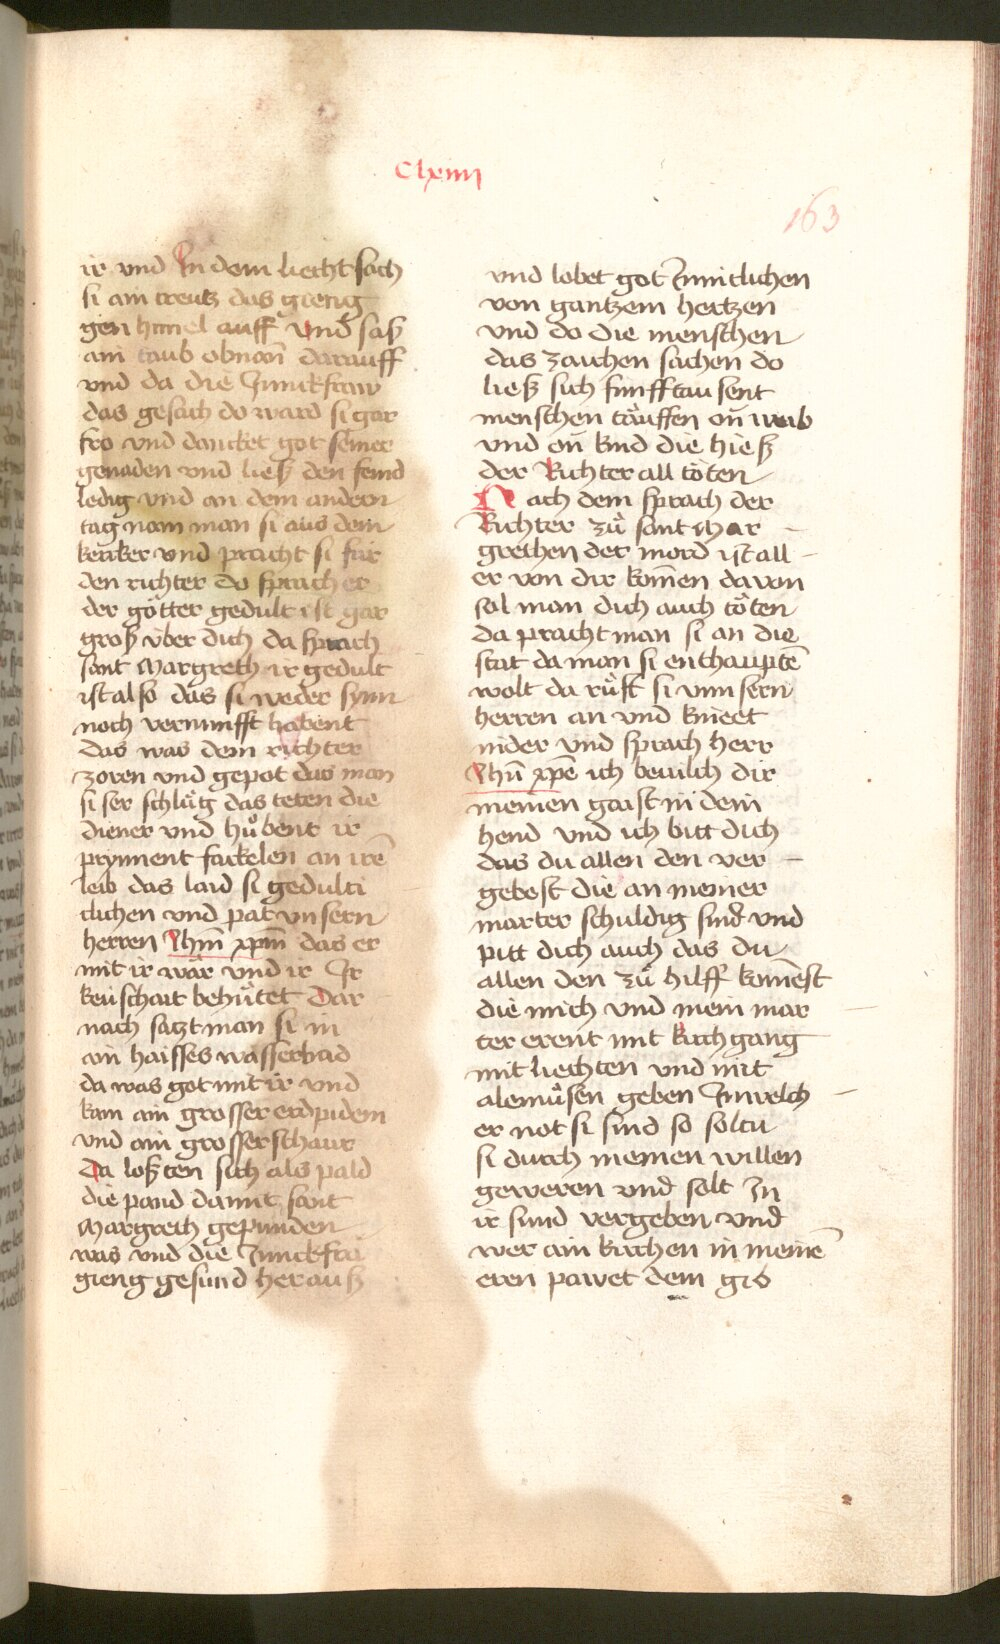 Clxiiii
163
ir vnd In dem liecht sach
si ain creutz das gieng
gen himel auff vnd sasß
ain taub obnan̄ darauff
vnd da die Junckfraw
das gesach do ward si gar
fro vnd dancket got seiner
genaden vnd liesß den feind
ledig vnd an dem andern
tag nam man si aus dem
kerker vnd pracht si für
den richter do sprach er
der götter gedult ist gar
grosß über dich da sprach
sant Margreth ir gedult
ist also das si weder synn
noch vernunfft habent
das was dem richter
zoren vnd gepot das man
si ser schlüg das teten die
diener vnd hůbent ir
prynnent fackelen an irē
leib das laid si gedulti
clichen vnd pat vnsern
herren Jhm̄ xpm̄ das er
mit ir wär vnd ir Ir
keuschait behütet Dar
nach satzt man si in
ain haisses wasserbad
da was got mit ir vnd
kam ain grosser erdpidem
vnd ain grosser schaur
Da losßten sich als pald
die pand damit sant
Margreth gepunden
was vnd die Junckfra
gieng gesund herausß
vnd lobet got Jnnitclichen
von gantzem hertzen
vnd do die menschen
das zaichen sachen do
liesß sich funfftausent
menschen täuffen on̄ weib
vnd on̄ kind die hiesß
der Richter all töten
Nach dem sprach der
Richter zů sant Mar
grethen der mord ist all
er von dir kom̄en davon
sol man dich auch töten
da pracht man si an die
stat da man si enthauptē
wolt da rüfft si vnnsern
herren an vnd knieet
nider vnd sprach herr
Jhū xp̄e ich beuilch dir
meinen gaist in dein
hend vnd ich bitt dich
das du allen den ver
gebest die an meiner
marter schuldig sind vnd
pitt dich auch das du
allen den zů hilff komēst
die mich vnd mein mar
ter erent mit kirchgang
mit liechten vnd mit
alemůsen geben Jnwelch
er not si sind so soltu
si durch meinen willen
geweren vnd solt In
ir sund vergeben vnd
wer ain kirchen in meinē
eren pawet dem gib